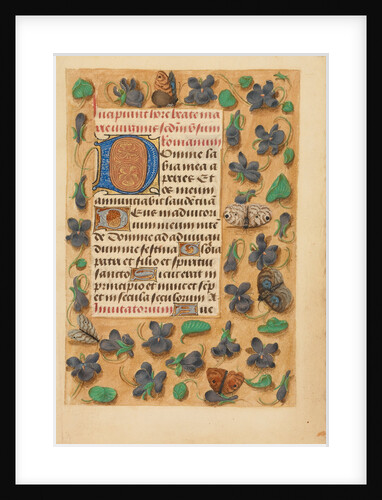 Incipiunt hore beate ma
rie virginis secundum usum
romanum
Domine la
bia mea a
peries Et
os meum
annuntiabit laudem tuam
Deus in adiutori
um meum inten
de Domine ad adiuvan
dum me festina Gloria
patri et filio et spiritui
sancto Sicut erat in
principio et nunc et sem
et in secula seculorum A
Invitatorium Ave